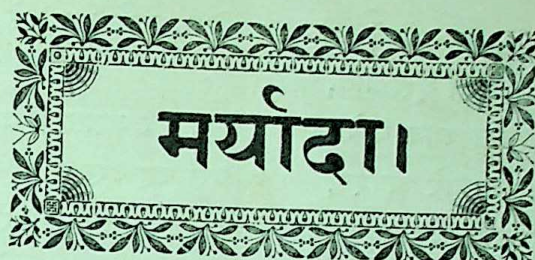 मर्यादा।